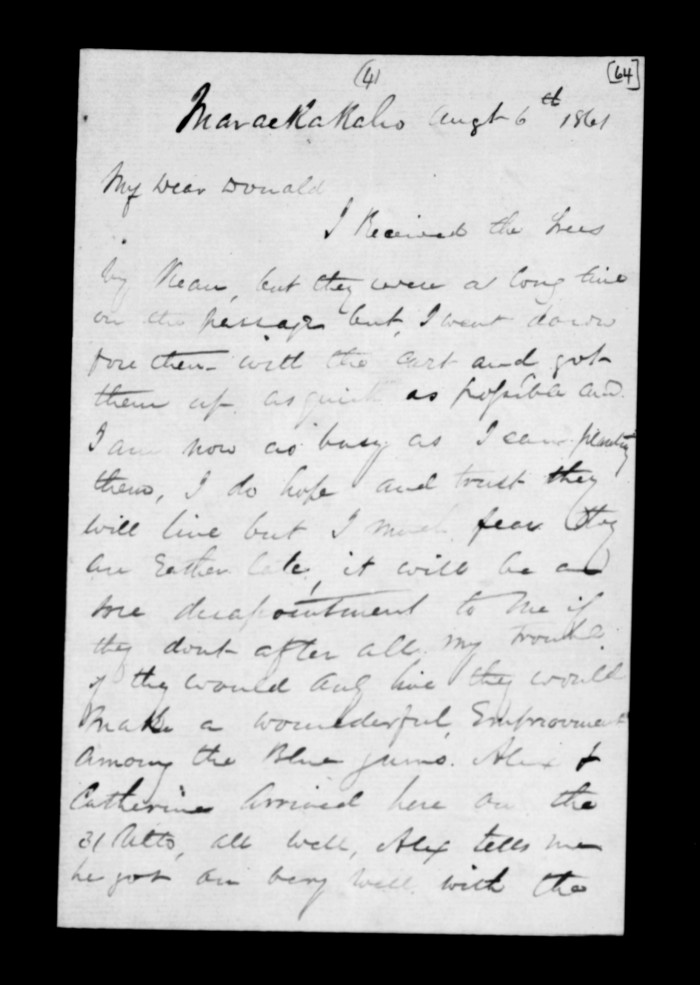 (4)
[64]
Maraekakaho Augt 6th 1861
My Dear Donald
I Received the Trees
by Kean, but they were a long time
on the passage but, I went down
fore them with the cart and got
them up as quick as possible and
I am now as busy as I can planting
them, I do hope and trust they
will live but I much fear they
are Eather late, it will be a
sore disapointment to me if
they dont after all my trouble.
if they would only live they would
Make a wounderful, Emprovment
among the Blue gums. Alex &
Catherine Arrived here on the
31 Ulto, all well, Alex tells me
he got on very well with the